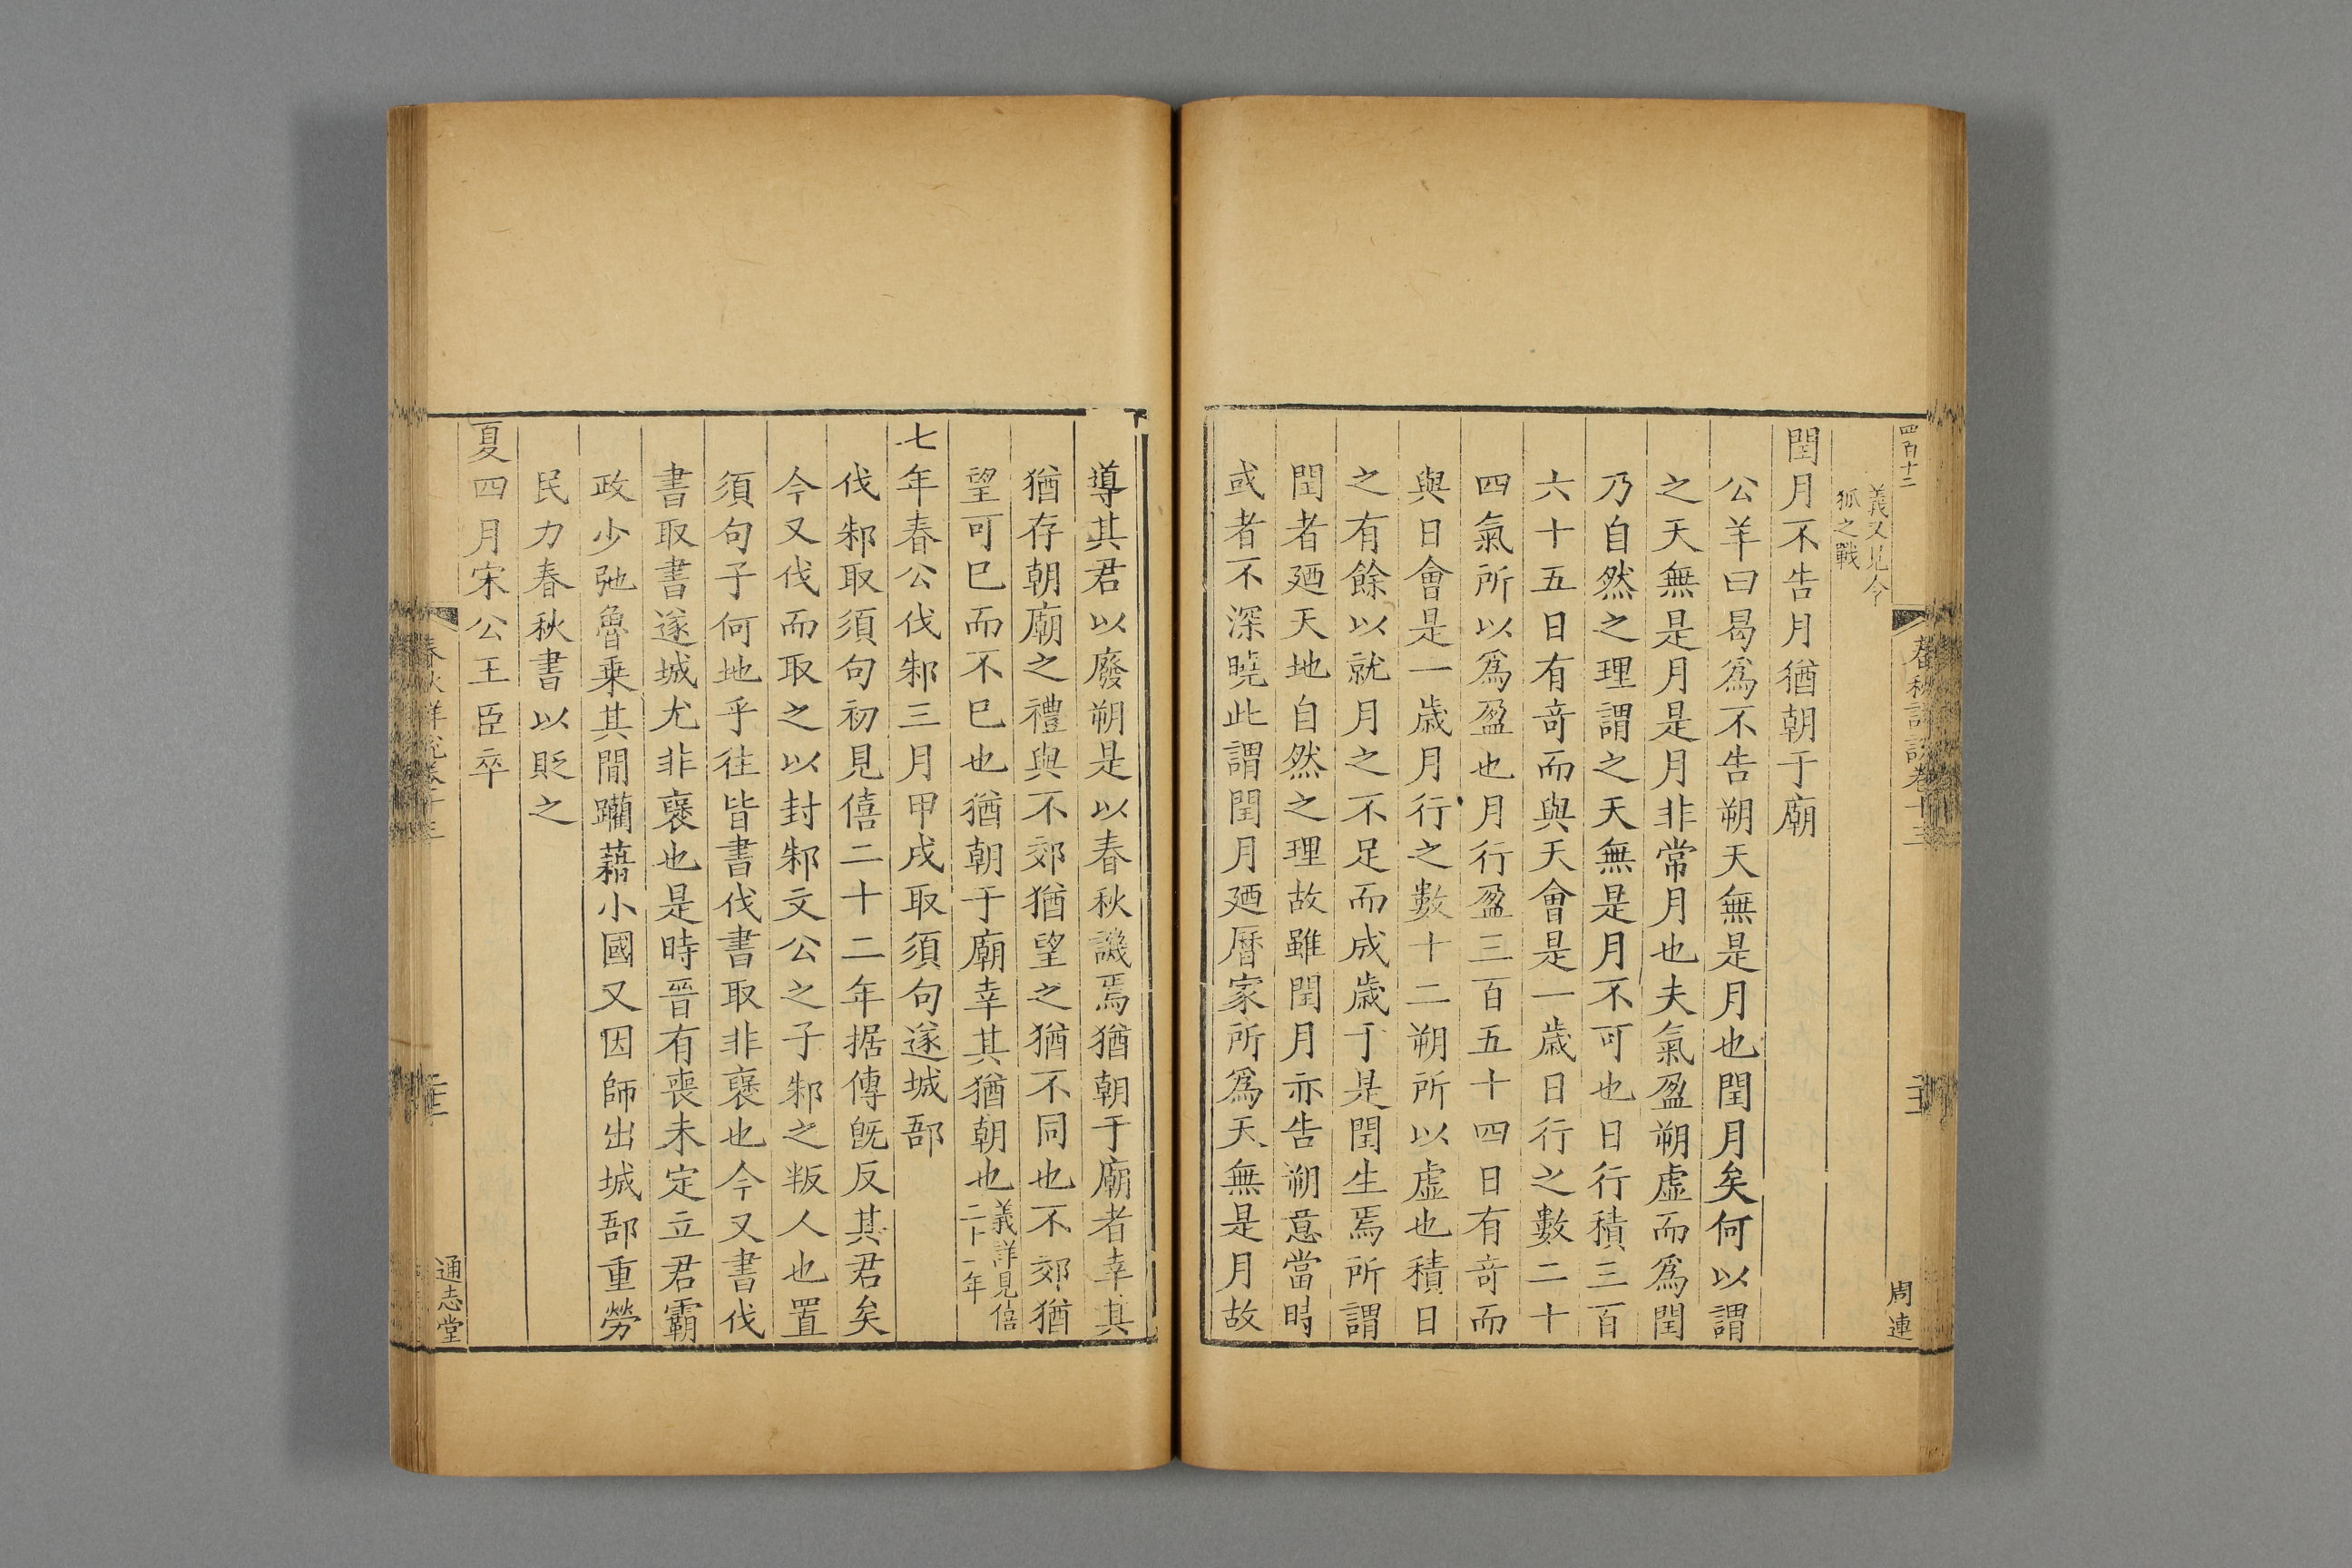 四百十二
春秋詳說卷十三
周連
義又見令
狐之戰
閏月不告月猶朝于廟
公羊曰曷爲不告朔天無是月也閏月矣何以謂
之天無是月是月非常月也夫氣盈朔虛而爲閏
乃自然之理謂之天無是月不可也日行積三百
六十五日有奇而與天會是一歲日行之數二十
四氣所以爲盈也月行盈三百五十四日有奇而
與日會是一歲月行之數十二朔所以虛也積日
之有餘以就月之不足而成歲于是閏生焉所謂
閏者廼天地自然之理故雖閏月亦告朔意當時
或者不深曉此謂閏月廼曆家所爲天無是月故
導其君以廢朔是以春秋譏焉猶朝于廟者幸其
猶存朝廟之禮與不郊猶望之猶不同也不郊猶
望可巳而不巳也猶朝于廟幸其猶朝也義詳見僖
二十一年
七年春公伐邾三月甲戌取須句遂城郚
伐邾取須句初見僖二十二年据傳旣反其君矣
今又伐而取之以封邾文公之子邾之叛人也置
須句子何地乎往皆書伐書取非褒也今又書伐
書取書遂城尤非褒也是時晉有喪未定立君霸
政少弛魯乗其閒躪藉小國又因師出城郚重勞
民力春秋書以貶之
夏四月宋公王臣卒
春秋詳說卷十三
通志堂